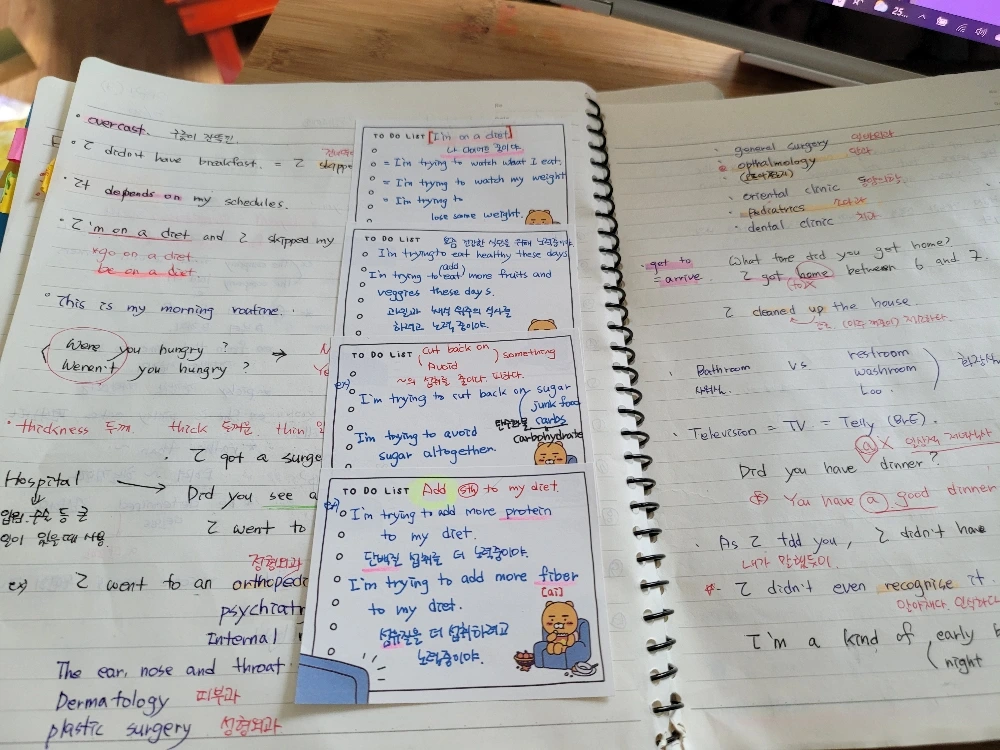 overcast. 구름이 잔뜩낀
I didn't have breakfast. = I skipped
It depends on my schedules.
I'm on a diet and I skipped my
*go on a diet
be on a diet.
This is my morning routine.
Were you hungry? →
Weren't you hungry?
thickness 두께 thick 두꺼운 thin
I got a surge
Hospital → Did you see a
입원, 수술 등 큰
일이 있을때 사용.
I went to
정형외과
ex) I went to an orthopedic
psychiatr
Internal
The ear, nose and throat
Dermatology 피부과
plastic surgery 성형외과
TO DO LIST [I'm on a diet]
나 다이어트 중이다.
= I'm trying to watch what I eat.
= I'm trying to watch my weight
= I'm trying to
lose some weight.
TO DO LIST 요즘 건강한 식단을 위해 노력중이야
I'm trying to eat healthy these days
(add)
I'm trying to eat more fruits and
veggies these days.
과일과 채식 위주의 식사를
하려고 노력중이야.
TO DO LIST (cut back on
Avoid) something
~의 섭취를 줄이다. 피하다.
ex)
I'm trying to cut back on sugar
junk food
탄수화물 carbs
carbohydrate
I'm trying to avoid
sugar altogether.
TO DO LIST Add sth to my diet.
ex)
I'm trying to add more protein
to my diet.
단백질 섭취를 더 노력중이야.
I'm trying to add more fiber
[ai]
to my diet.
섬유질을 더 섭취하려고
노력중이야.
25...
general surgery 일반외과
opthalmology 안과
oriental clinic 동양의학.
pediatrics 소아과
dental clinic 치과
get to
= arrive.
What time did you get home?
I got home between 6 and 7.
(to)X
I cleaned up the house.
Bathroom vs restroom
washroom
Loo.
Television = TV = Telly (BrE).
(a) X
Did you have dinner?
You have (a) good dinner
As I told you, I didn't have
내가 말했듯이
I didn't even recognise it.
알아채다. 인식하다
I'm a kind of (early
night